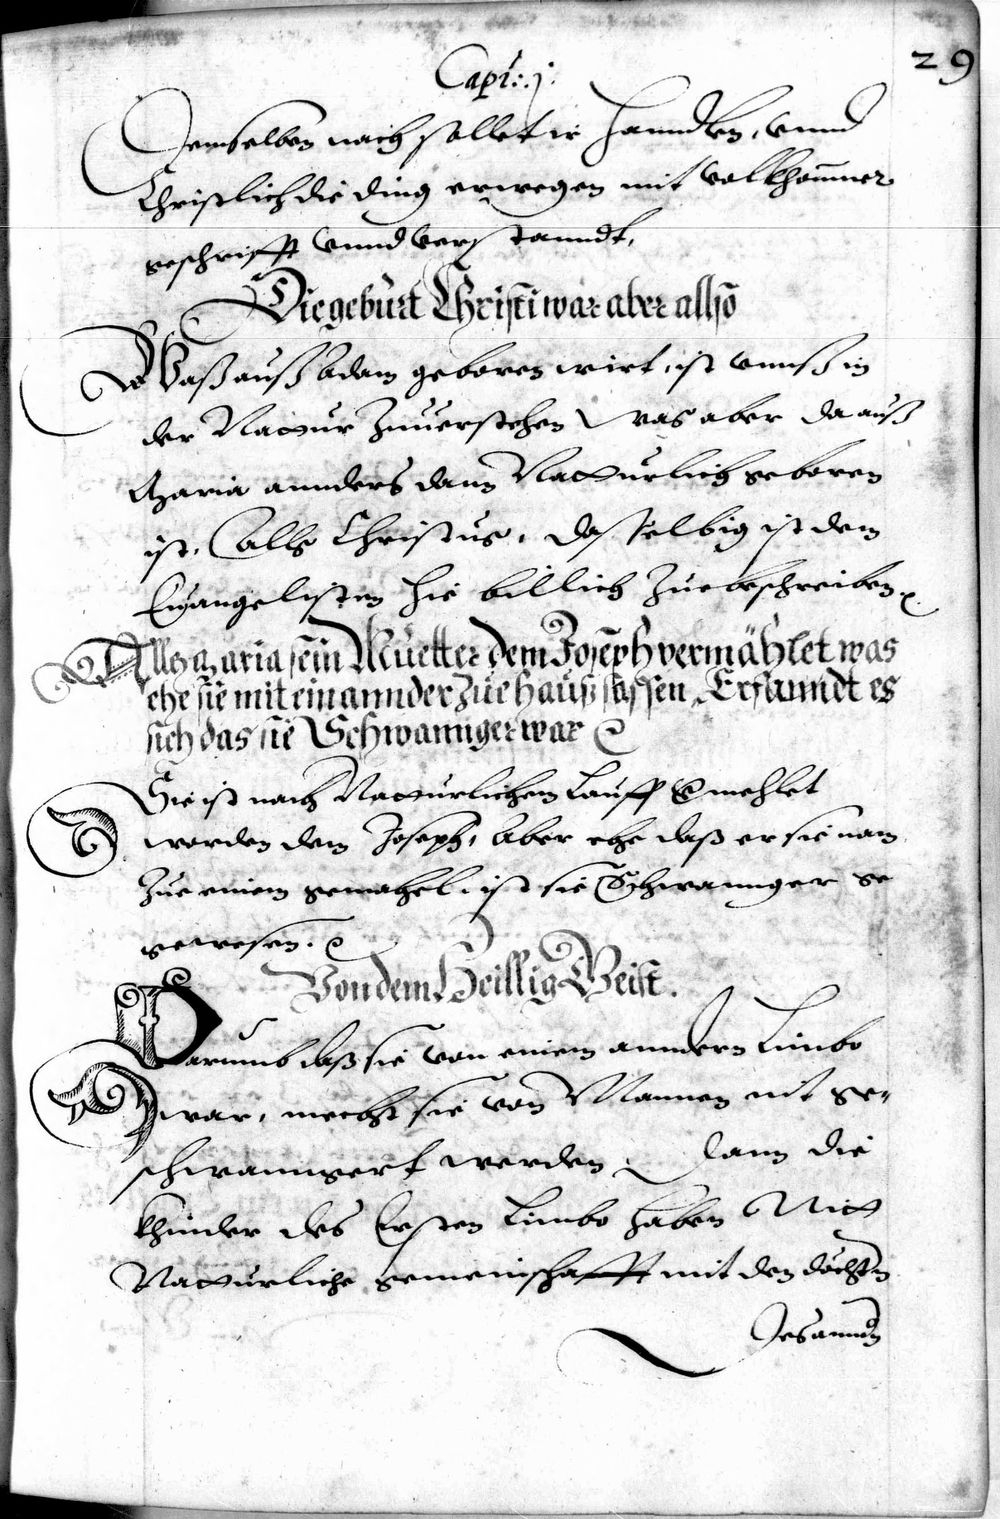 29
Capi: j:
Demselben nach sollet ir hanndlen, vnnd
Christlich die ding erwegen mit volkhom̄ner
geschrifft vnnd verstanndt,
Die geburt Christi war aber allso
Waß auß Adam geboren wirt, ist vnnß in
der Nattur Zuuerstehen, was aber da auß
Maria annders dann Natturlich geboren
ist, Alls Christus, dasselbig ist dem
Euangelisten hie billich Zue beschreiben
Alls Maria sein Muetter dem Joseph vermählet was
ehe sie mit einannder Zue hauß sassen, Erfanndt es
sich das sie Schwannger war
Sie ist nach Natturlichem Lauff mehlet
worden dem Joseph, Aber ehe daß er sie nam
Zue einem gemahel, ist sie Schwannger ge
gewesen.
Von dem Heillig Geist.
Darumb daß sie von einem anndern Limbo
war, mecht sie von Mannen nit ge-
schwanngert werden, Dann die
khinder des Ersten Limbo haben Nitt
Natturliche gemeinschafft mit den döchtn
Desannd